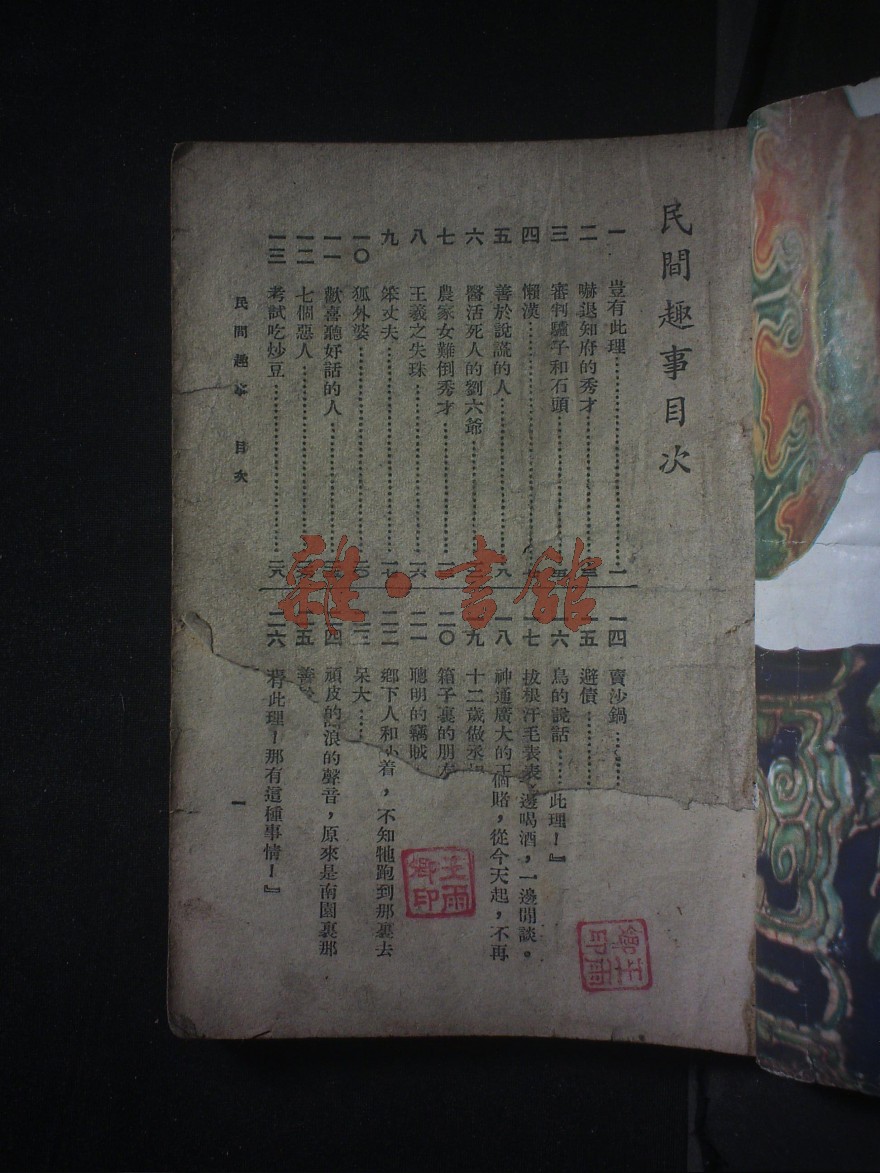 民間趣事目次
一 豈有此理……一
二 嚇退知府的秀才……
三 審判驢子和石頭……
四 懶漢……
五 善於說謊的人……八
六 醫活死人的劉六爺……
七 農家女難倒秀才……
八 王羲之失珠……一六
九 笨丈夫……一七
一〇 狐外婆……二〇
一一 歡喜聽好話的人……
一二 七個惡人……
一三 考試吃炒豆……二八
一四 賣沙鍋……
一五 避債……
一六 鳥的說話……
此理！』
一七 拔根汗毛表表
邊喝酒，一邊閒談。
一八 神通廣大的王
個賭，從今天起，不再
九 十二歲做丞相
二〇 箱子裏的朋友
二一 聰明的竊賊
二二 鄉下人和
着，不知牠跑到那裏去
二三 呆大……
二四 頑皮的
浪的聲音，原來是南園裏那
二五 善
二六
有此理！那有這種事情！』
民間趣事 目次
一
雜·書館
王雨卿印
王雨卿印